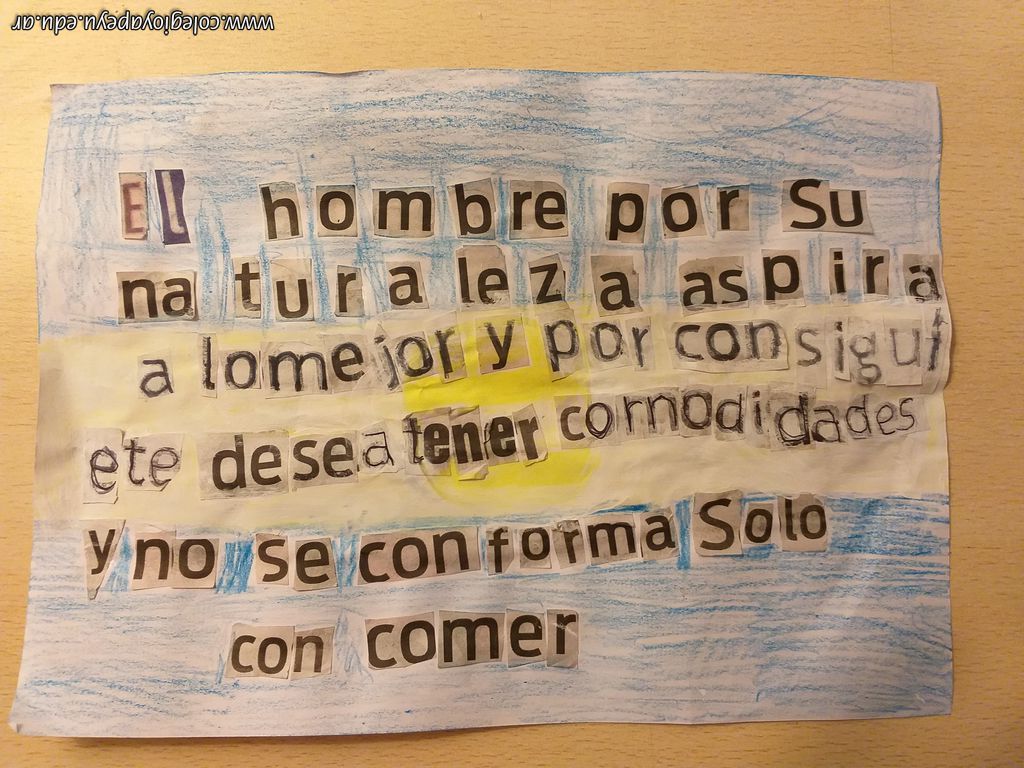 www.colegioyapeyu.edu.ar
El hombre por Su
naturaleza aspira
a lo mejor y por consigui
ete desea tener comodidades
y no se conforma Solo
con comer